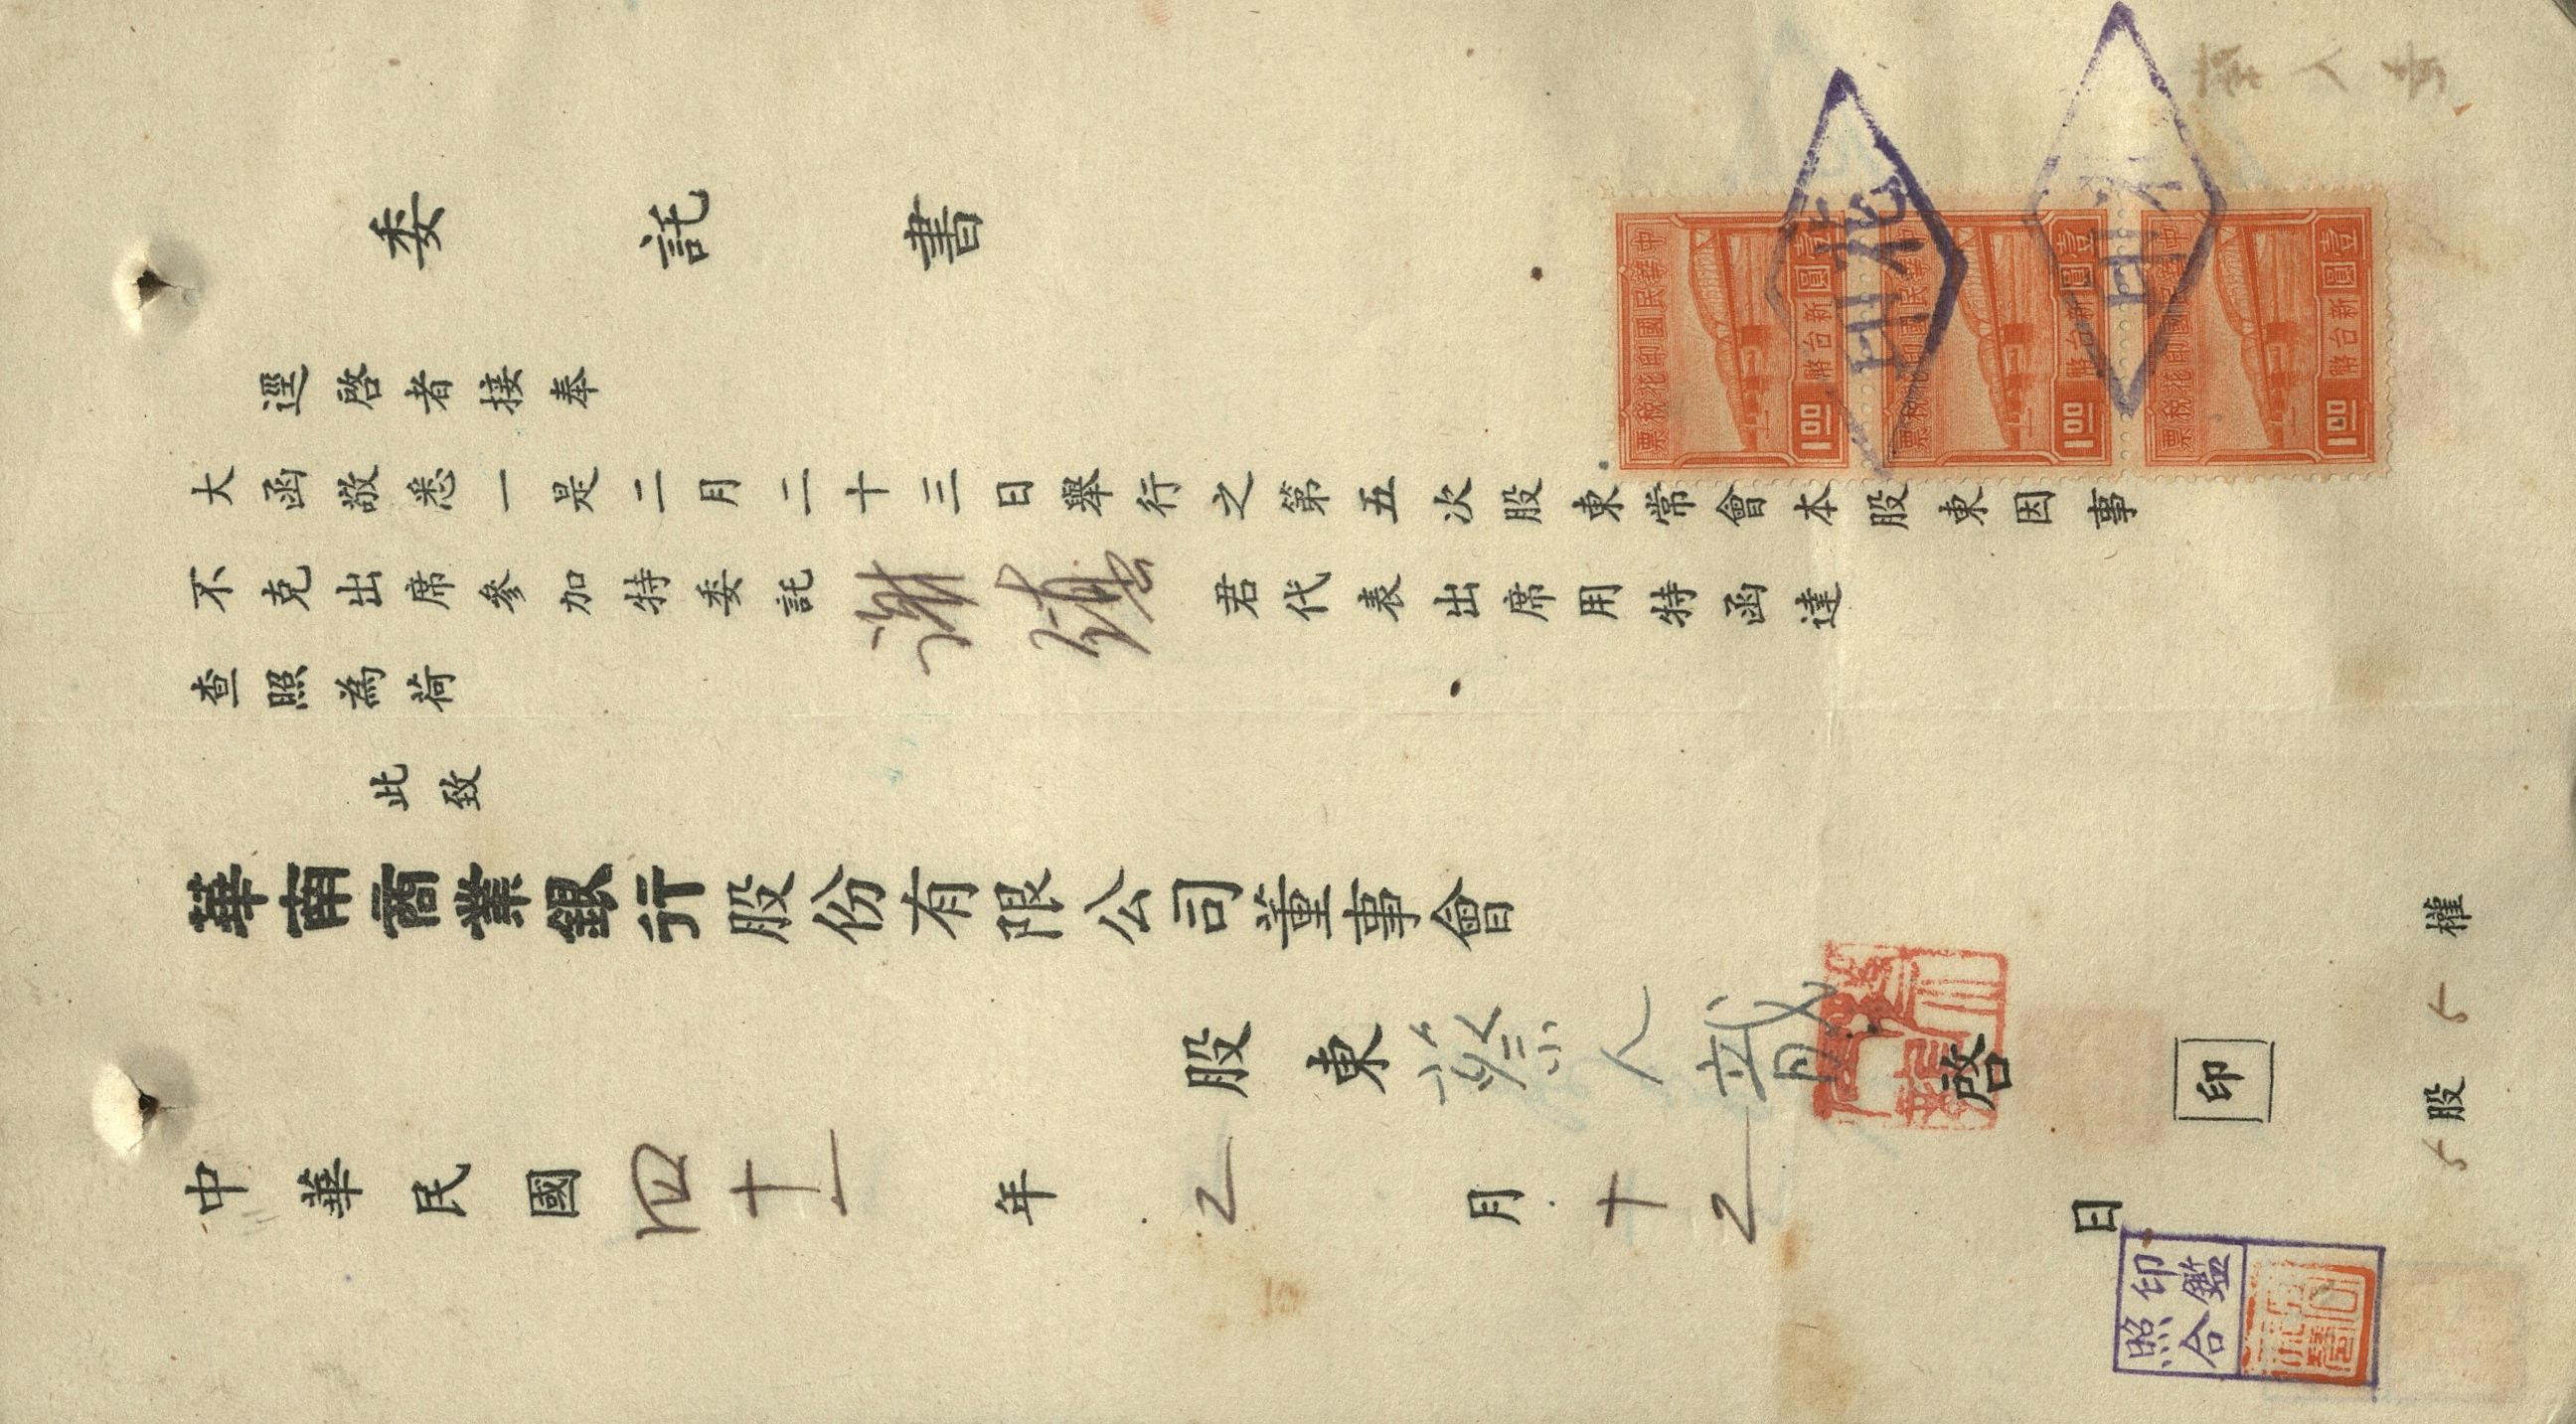 委託書
逕啓者接奉
大函敬悉一是二月二十三日舉行之第五次股東常會本股東因事
不克出席參加特委託謝鎮君代表出席用特函達
查照為荷
此致
華南商業銀行股份有限公司董事會
股東蔡人龍啓
印
中華民國四十一年2月十2日
5股5權
印鑑
照合
中華民國印花稅票
壹圓
新台幣
1.00
中華民國印花稅票
壹圓
新台幣
1.00
中華民國印花稅票
壹圓
新台幣
1.00